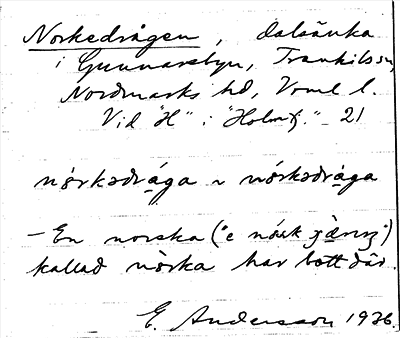 Norkedrågen, dalsänka
i Gunnarsbyn, Trankils sn,
Nordmarks hd, Vrml l.
Vid "H" i "Holmtj." 21
nòrkədråga ~ nórkədråga
– En norska ("e nórsk
kallad nòrka har bott där.
E. Andersson 1936.